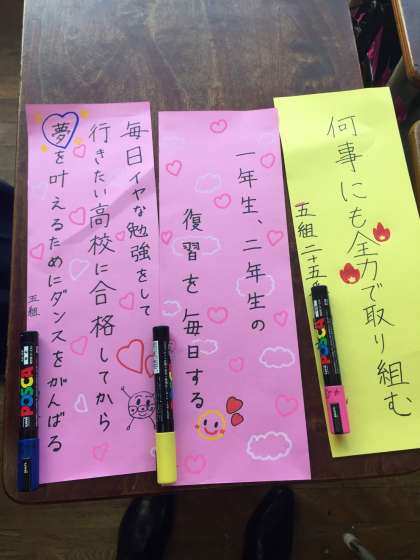 何事にも全力で取り組む
五組二十五
一年生、二年生の
復習を毎日する
毎日イヤな勉強をして
行きたい高校に合格してから
夢を叶えるためにダンスをがんばる
五組
POSCA
POSCA
POSCA